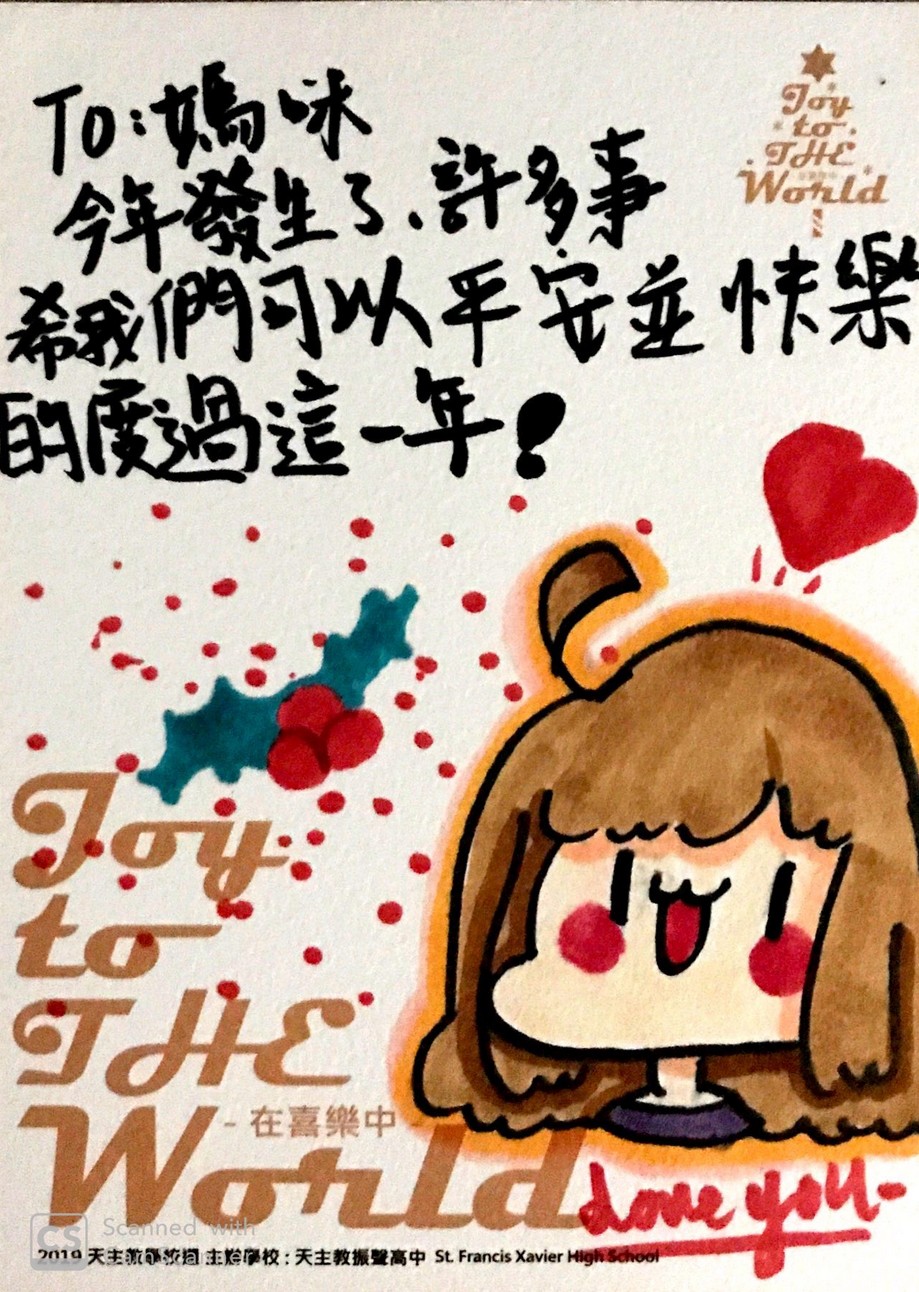 To:媽咪
今年發生了,許多事
希我們可以平安並快樂
的度過這一年!
Joy
to
THE
World
Joy
to
THE
World
- 在喜樂中
love you-
CS
Scanned with
2019 天主教學校週 主於學校 : 天主教振聲高中 St. Francis Xavier High School